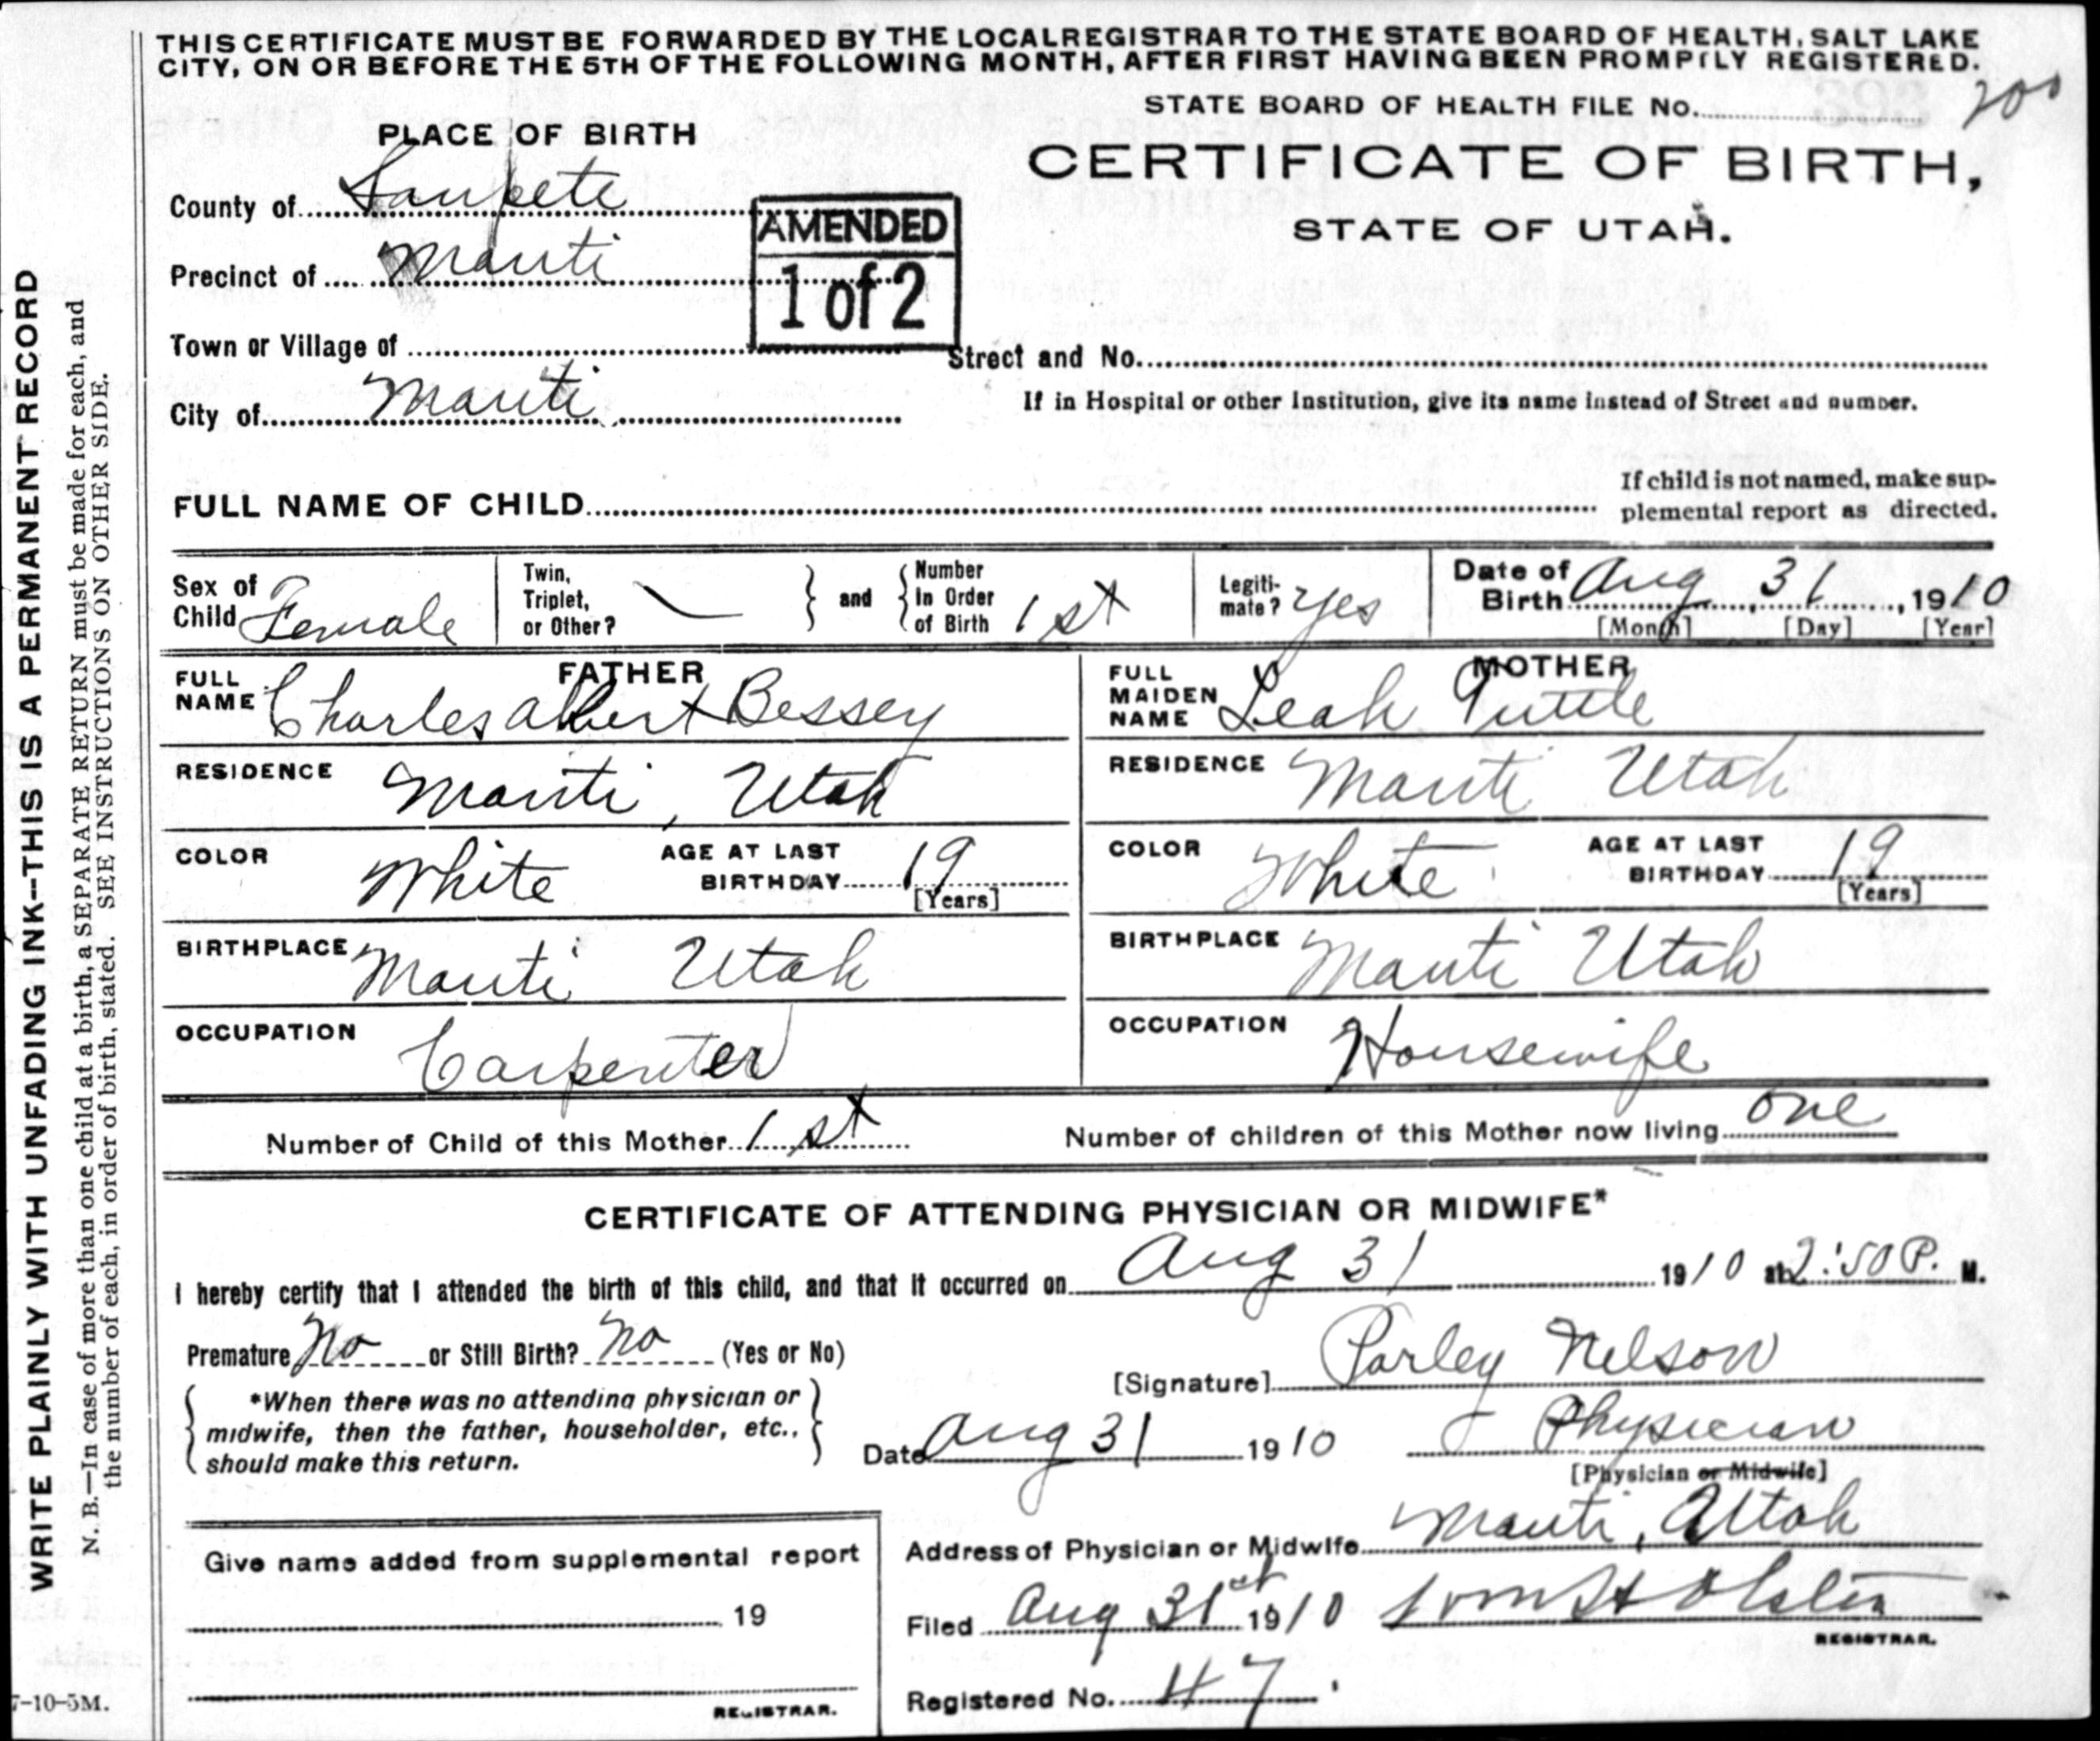 THIS CERTIFICATE MUST BE FORWARDED BY THE LOCAL REGISTRAR TO THE STATE BOARD OF HEALTH, SALT LAKE
CITY, ON OR BEFORE THE 5TH OF THE FOLLOWING MONTH, AFTER FIRST HAVING BEEN PROMPTLY REGISTERED.
STATE BOARD OF HEALTH FILE No. 200
PLACE OF BIRTH
CERTIFICATE OF BIRTH,
STATE OF UTAH.
County of Sanpete
Precinct of Manti
AMENDED
1 of 2
Town or Village of
Street and No.
City of Manti
If in Hospital or other Institution, give its name instead of Street and number.
FULL NAME OF CHILD
If child is not named, make sup-
plemental report as directed.
Sex of Child Female
Twin, Triplet, or Other? and Number In Order of Birth 1st
Legiti- mate? yes
Date of Birth Aug 31, 1910
[Month] [Day] [Year]
FATHER
FULL NAME Charles Albert Bessey
RESIDENCE Manti, Utah
COLOR White AGE AT LAST BIRTHDAY 19 [Years]
BIRTHPLACE Manti Utah
OCCUPATION Carpenter
MOTHER
FULL MAIDEN NAME Leah Tuttle
RESIDENCE Manti Utah
COLOR White AGE AT LAST BIRTHDAY 19 [Years]
BIRTHPLACE Manti Utah
OCCUPATION Housewife
Number of Child of this Mother 1st Number of children of this Mother now living one
CERTIFICATE OF ATTENDING PHYSICIAN OR MIDWIFE*
I hereby certify that I attended the birth of this child, and that it occurred on Aug 31 1910 at 2:50 P. M.
Premature No or Still Birth? No (Yes or No)
[Signature] Parley Nelson
*When there was no attending physician or
midwife, then the father, householder, etc.,
should make this return.
Date Aug 31 1910 Physician
[Physician or Midwife]
Address of Physician or Midwife Manti, Utah
Give name added from supplemental report
19
REGISTRAR.
Filed Aug 31st 1910
REGISTRAR.
Registered No. 47
7-10-5M.
WRITE PLAINLY WITH UNFADING INK--THIS IS A PERMANENT RECORD
N. B.—In case of more than one child at a birth, a SEPARATE RETURN must be made for each, and
the number of each, in order of birth, stated. SEE INSTRUCTIONS ON OTHER SIDE.